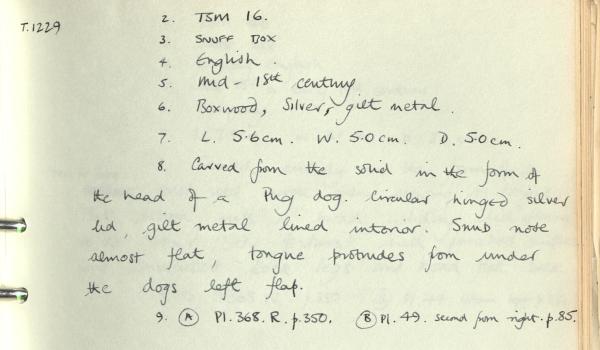 T.1229
2. TSM 16.
3. SNUFF BOX
4. English.
5. Mid-18th century
6. Boxwood, Silver, gilt metal.
7. L. 5.6cm. W. 5.0cm. D. 5.0cm.
8. Carved from the solid in the form of
the head of a Pug dog. Circular hinged silver
lid, gilt metal lined interior. Snub nose
almost flat, tongue protrudes from under
the dogs left flap.
9. (A) Pl.368.R.p.350. (B) Pl.49. second from right.p.85.